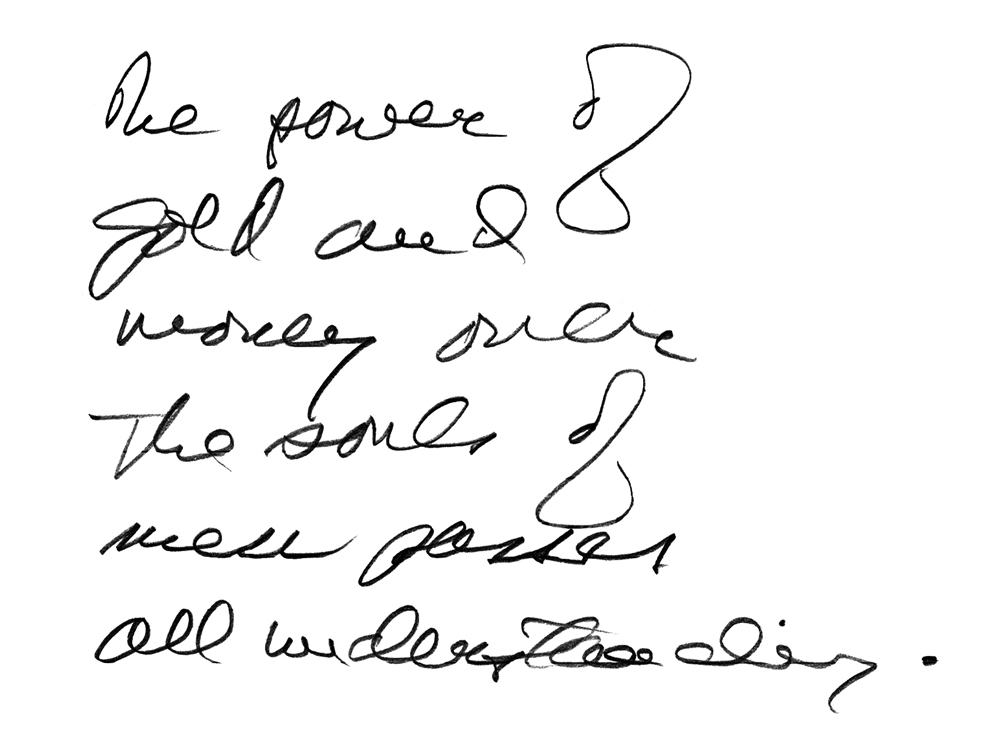 The power of
gold and
money over
the souls of
men passes
all understanding.